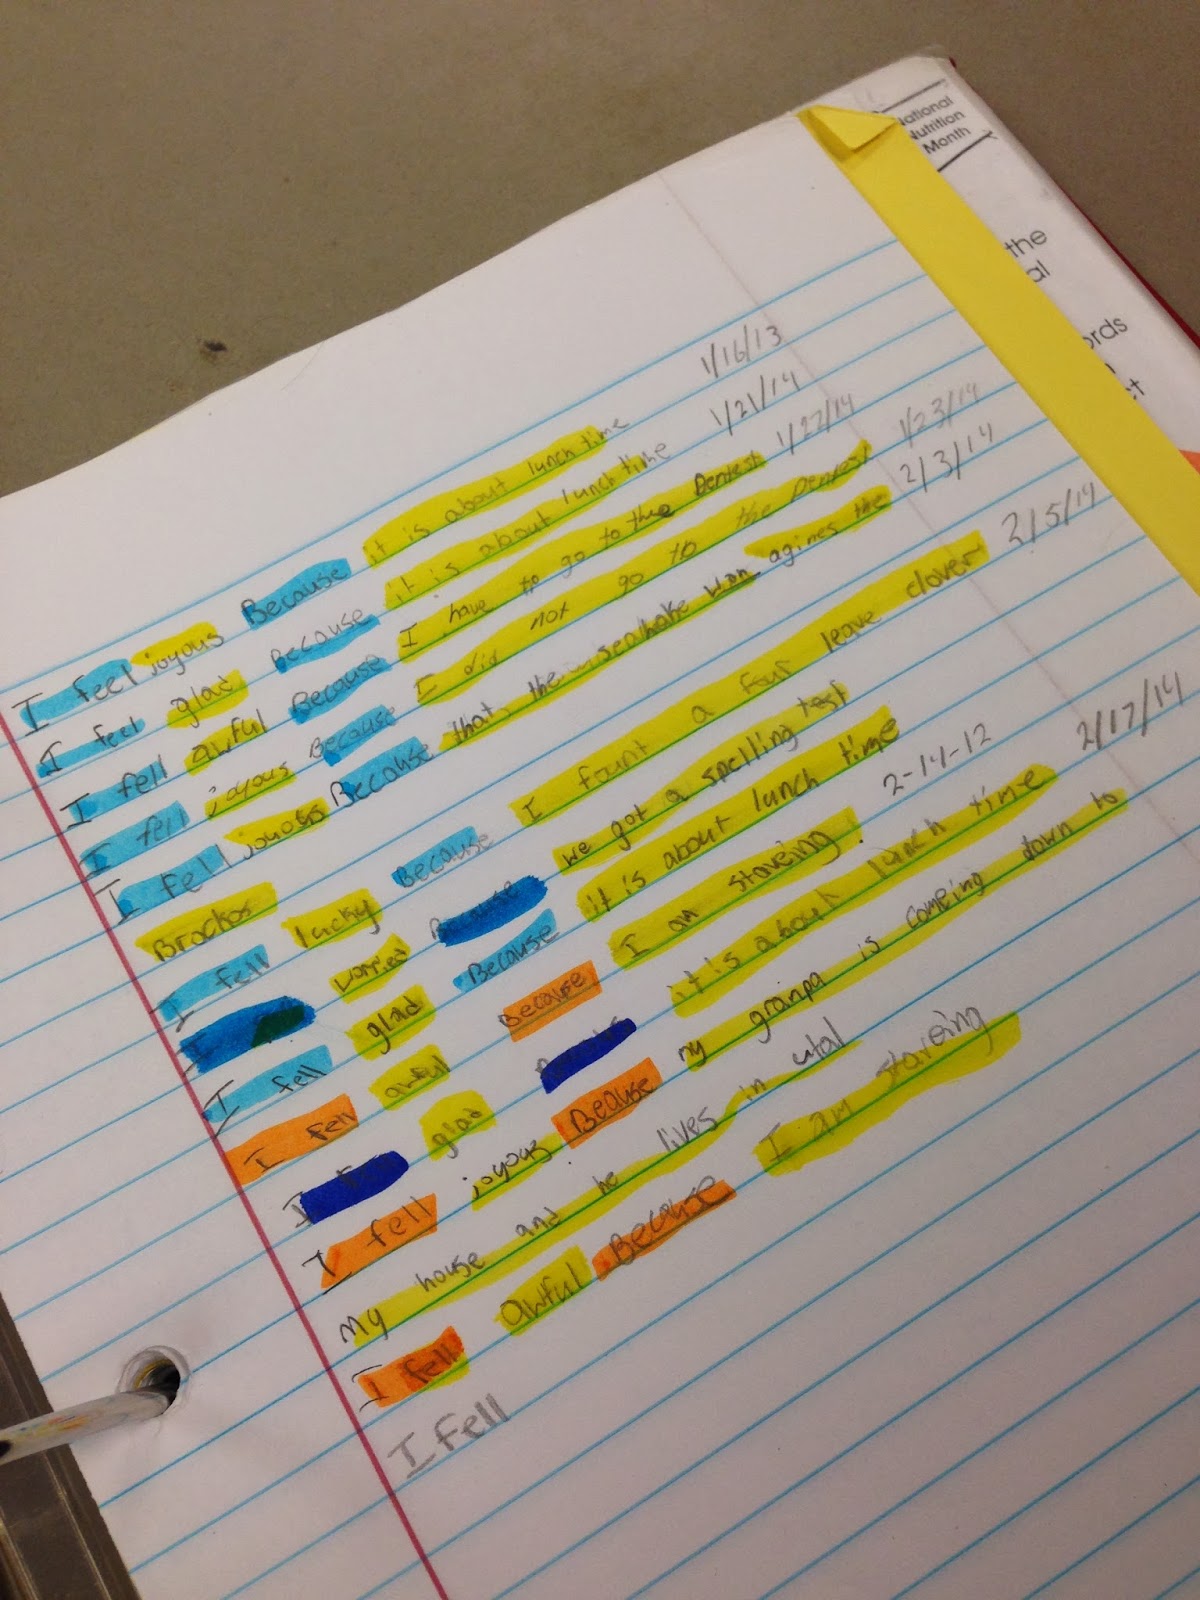 National
Nutrition
Month
the
al
ords
et
I feel joyous Because it is about lunch time 1/16/13
I feel glad Because it is about lunch time 1/21/14
I fell awful Because I have to go to the Dentest 1/22/14
I fell joyous Because I did not go to the Dentest 1/23/14
I fell joyous Because that the seahake won agines the 2/3/14
Brockos
I fell lucky Because I fount a four leave clover 2/5/14
I worried Because we got a spelling test
I fell glad Because it is about lunch time
I fell awful Because I am staveing. 2-14-12
I glad it is about lunch time
I fell joyous Beause my granpa is comeing down to 2/17/14
My house and he lives in utal
I fell awful Because I am starveing
I Fell